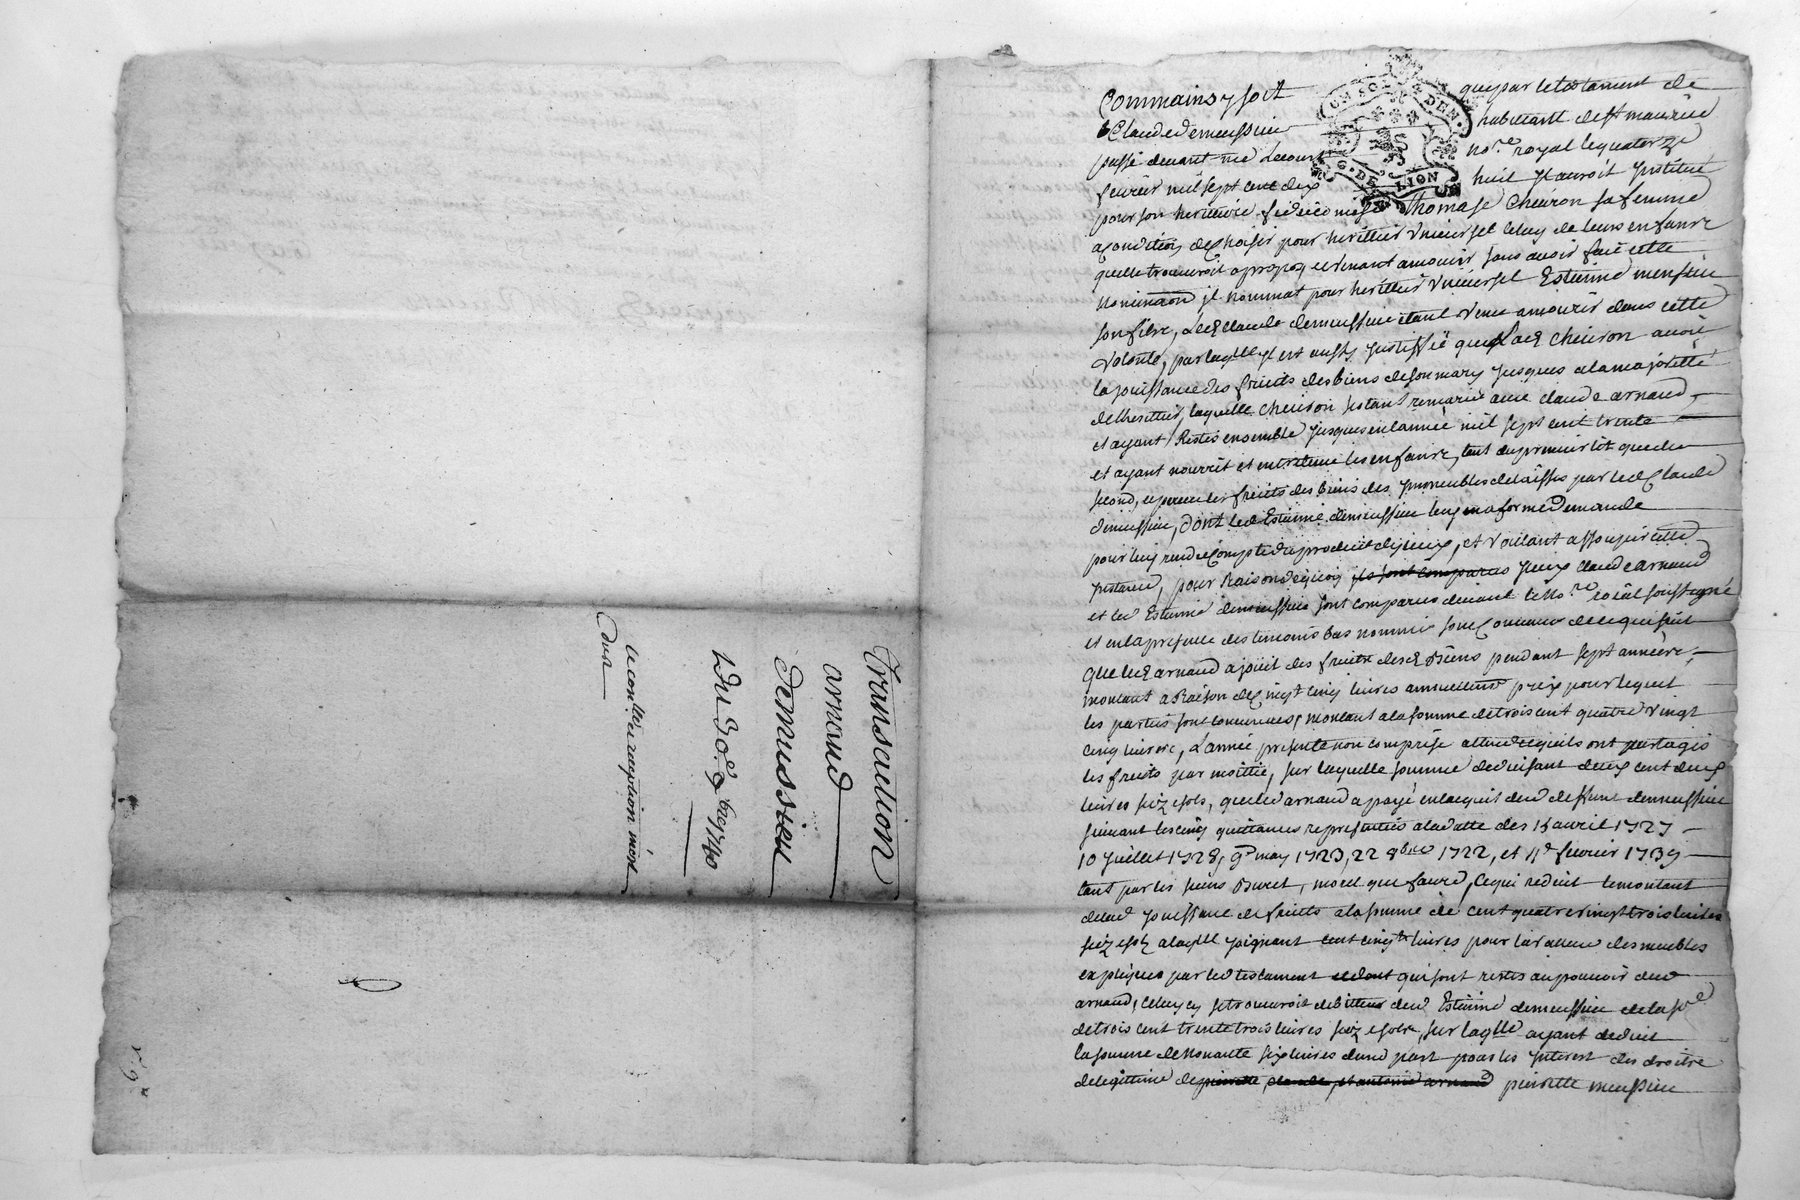 Transaction
arnaud
Demussieu
Du 30e 9bre 1740
Commainsy soit que par le testament de
Claude demeussieu habittant de st maurice
passé devant me Lecourt nore royal le quatorze
feuvrier mil sept cent dix huit Il auroit Institué
pour son heritière fidéicomisse Thomase Cheuron sa femme
a condition de choisir pour herittier Vniversel celuy de leurs enfants
quelle trouueroit a propos et venant a mourir sans auoir fait cette
Nominaon jl nommat pour herittier Vniuersel Estienne meussieu
son filz, Led Claude demeussieu étant venu a mourir dans cette
Volonté, par laqlle jl est aussy justiffié que Lad Cheuron auoit
la jouissance des fruits des biens de son mary jusques a la majoritté
de lherittier, laquelle Cheuron sétant remariée auec claude arnaud,
et ayant Restés ensemble jusques en lannée mil sept cent trente
et ayant nourrit et entretenu les enfants, tant du premier lit que du
second, et perceu les fruits des biens des jmmeubles delaissés par led Claude
demeussieu, dont led Estienne demeussieu luy en a formé demande
pour luy rendre Compte du produit diceux, et voulant assoupir cette
jnstance, pour Raison de quoy ils sont comparus jceux claude arnaud
et led Estienne demeussieu sont comparus deuant le Nore roial soussigné
et en la presence des temoins bas nommés sont Conuenus de ce qui suit
que led arnaud a jouit des fruits desd Biens pendant sept années,
montant a Raison de Cinqt cinq liures annuellemt prix pour lequel
les parties sont conuenues, montant a la somme de trois cent quatre vingt
cinq liures, Lannée presente non comprise attendu quils ont partagés
les fruits par moittié, sur laquelle somme deduisant deux cent deux
liures seize sols, que led arnaud a payé en lacquit dud deffunt demeussieu
suiuant les cinq quittances representées a la datte des 15 auril 1727
10 juillet 1728, 9e may 1723, 22 8bre 1722, et 11e feuvrier 1739
tant par les sieurs Buret, morel que faure, Ce qui reduit le montant
de lad jouissance de fruits a la somme de cent quatre vingt trois liures
seize sols a laqlle joignant cent cinqte liures pour la valleur des meubles
expliqués par led testament qui sont restés au pouuoir dud
arnaud, Celuy cy se trouueroit debitteur dud Estienne demeussieu de la se
de trois cent trente trois liures seize sols, sur laqlle ayant deduit
la somme de Nonante six liures dune part pour les jnterest des droits
de legittime de pierrette, claude, et antoine arnaud pierrette meussieu
UN SOL 4 DEN.
G. DE LION